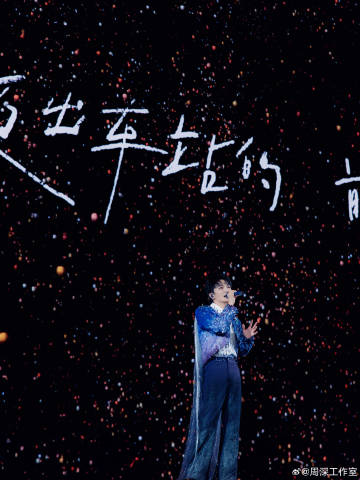 迈出车站的 前
@周深工作室